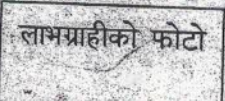 लाभग्राहीको फोटो